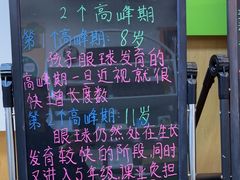 2个高峰期
第1个高峰期：8岁
孩子眼球发育的
高峰期一旦近视就很
快增长度数
第2个高峰期：11岁
眼球仍然处在生长
发育较快的阶段，同时
又进入5年级，课业负担